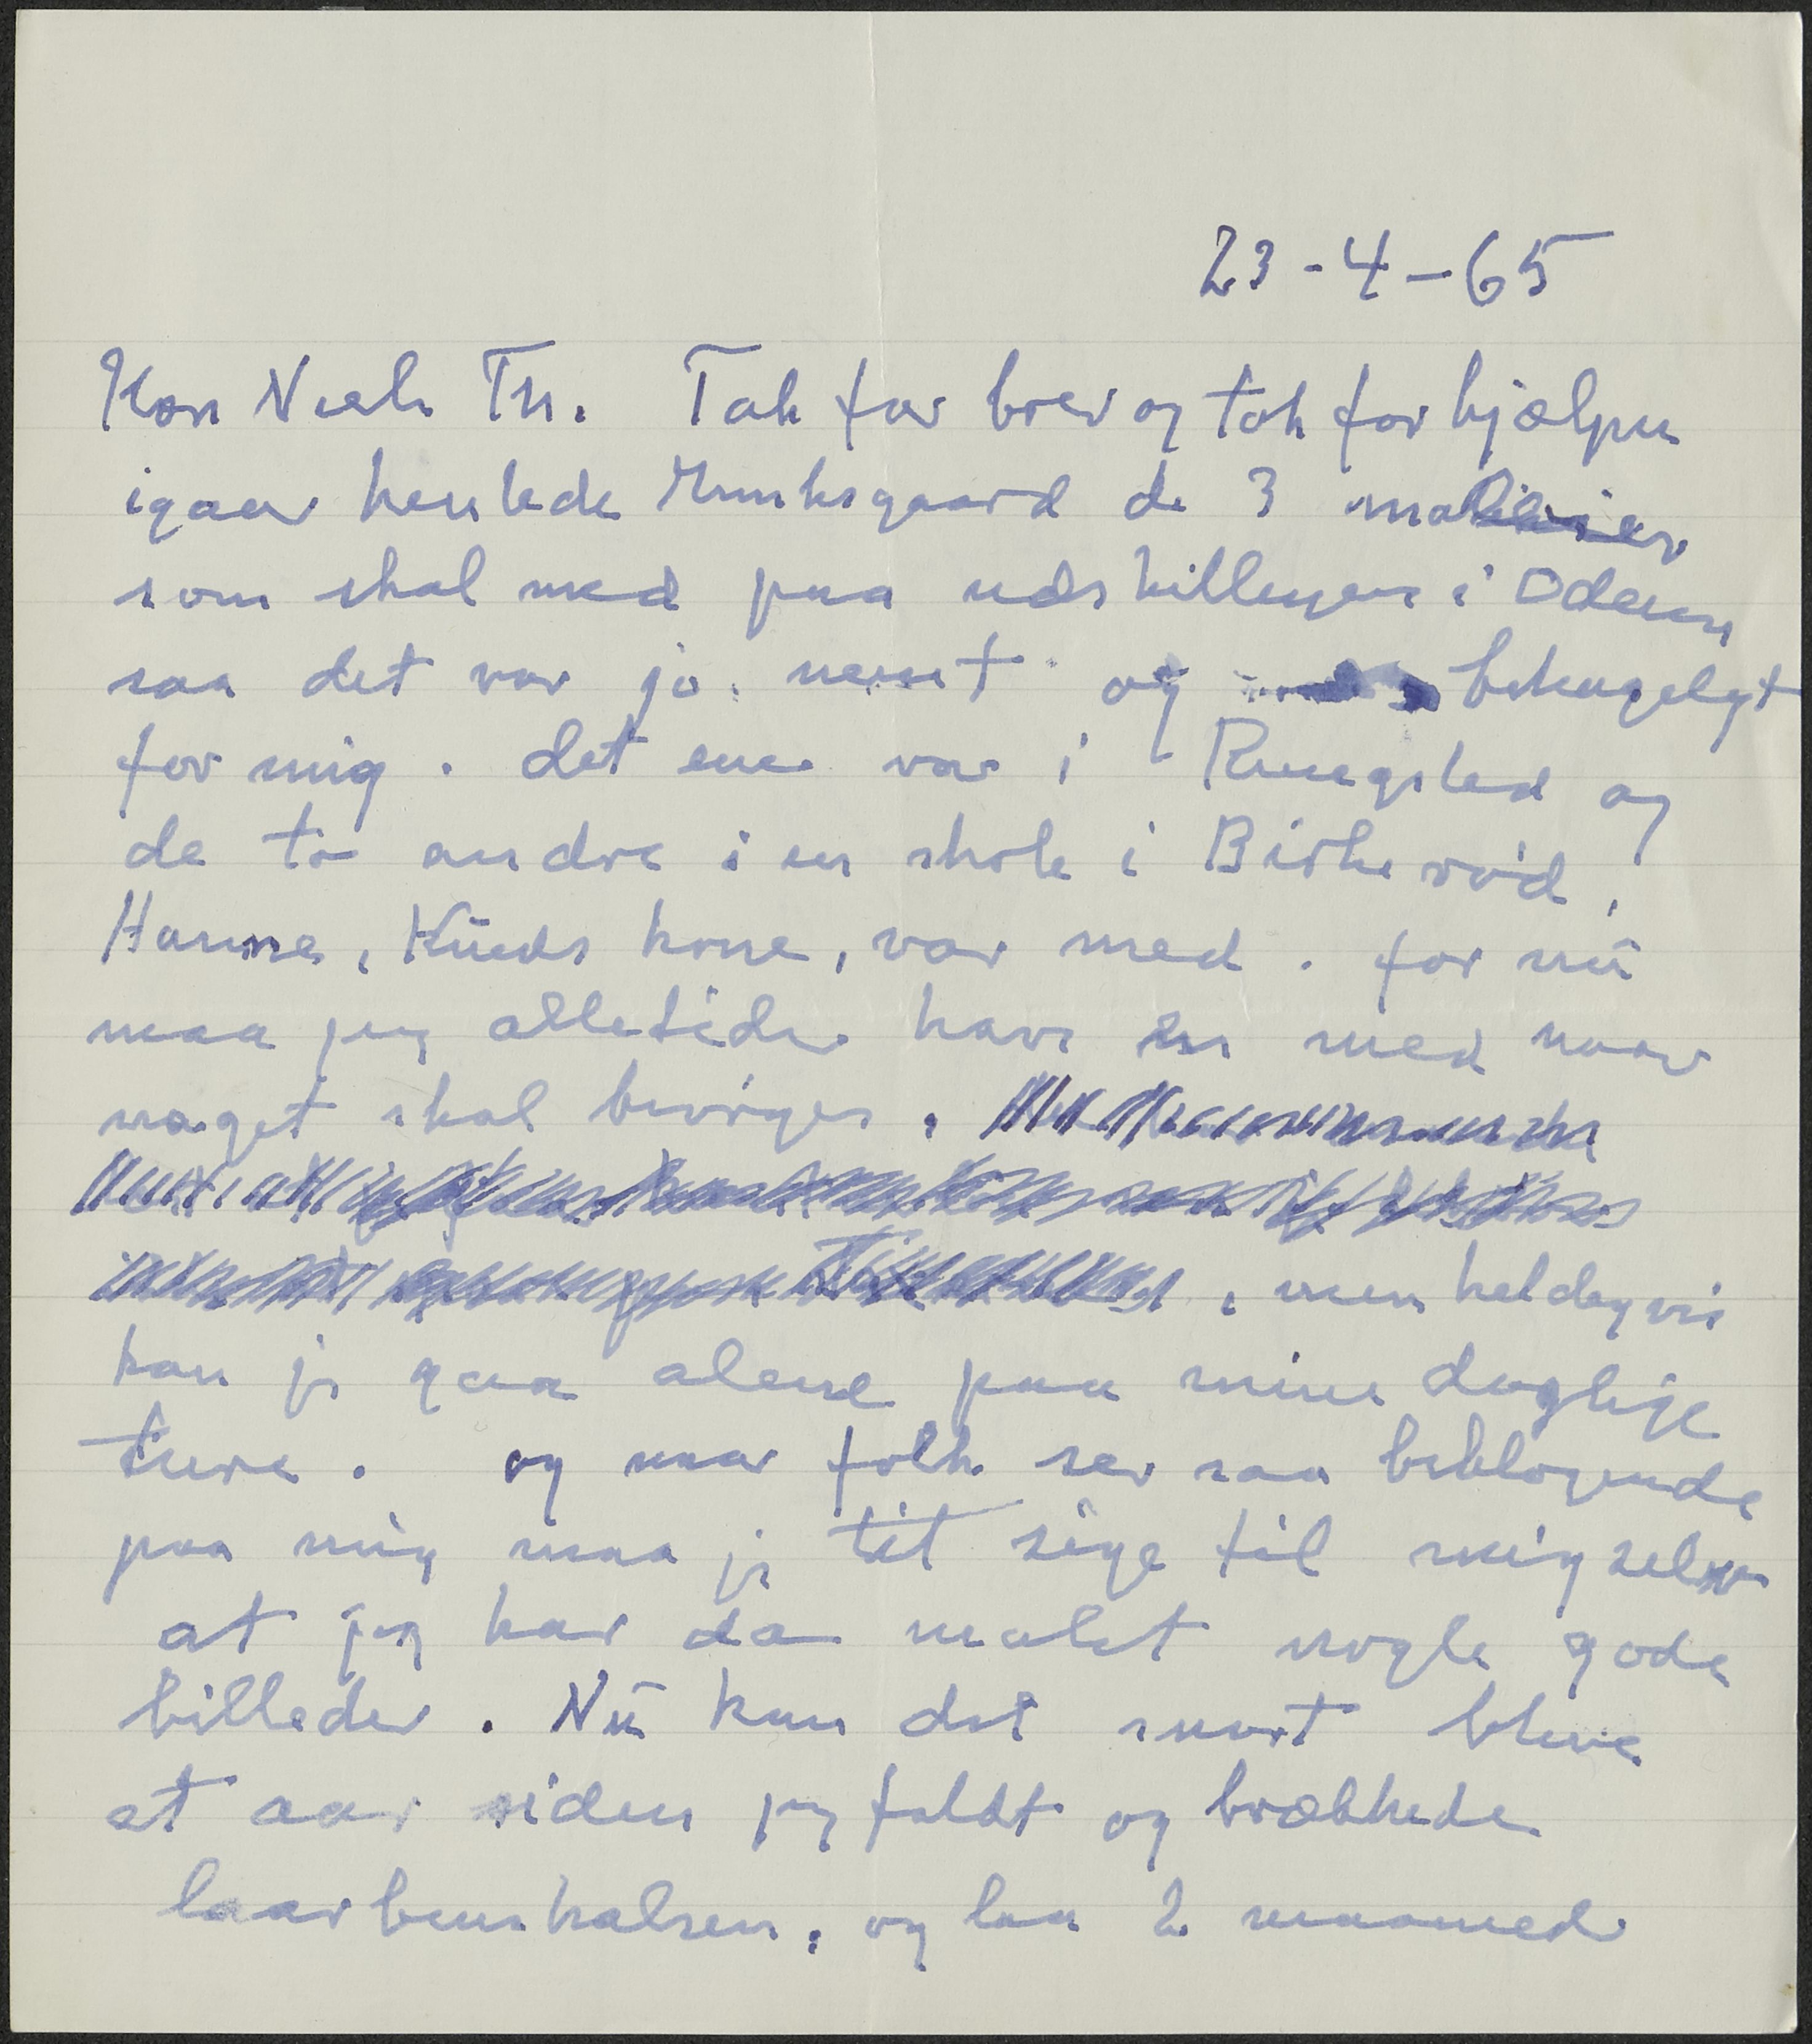 23-4-65
Kære Niels Th. Tak for brev og tak for hjælpen
igaar hentede Munksgaard de 3 malerier
som skal med paa udstillingen i Odense
saa det var jo nemt og behageligt
for mig. det ene var i Rungsted og
de to andre i en skole i Birkerød,
Hanne, Knuds kone, var med. for nu
maa jeg alletider have en med naar
noget skal besørges.
, men heldigvis
kan jeg gaa alene paa mine daglige
ture. og naar folk ser saa beklagende
paa mig maa jeg tit sige til mig selv
at jeg har da malet nogle gode
billeder. Nu kan det snart blive
et aar siden jeg faldt og brækkede
laarbenshalsen, og laa 2 maaned